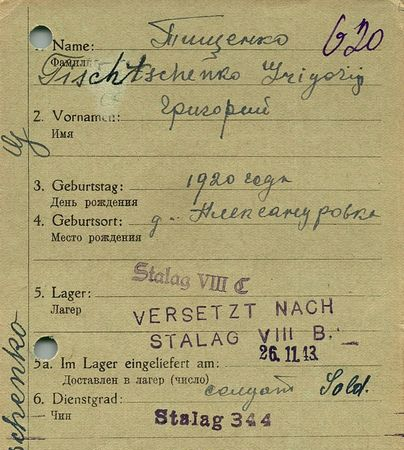 Name: Тищенко
620
Фамилия
Tischtschenko Grigorij
2. Vornamen: Григорий
Имя
3. Geburtstag: 1920 года
День рождения
4. Geburtsort: д. Александровка
Место рождения
Stalag VIII C
5. Lager:
Лагер
VERSETZT NACH
STALAG VIII B.
26.11.43.
5a. Im Lager eingeliefert am:
Доставлен в лагер (число)
6. Dienstgrad: солдат Sold.
Чин
Stalag 344
schenko